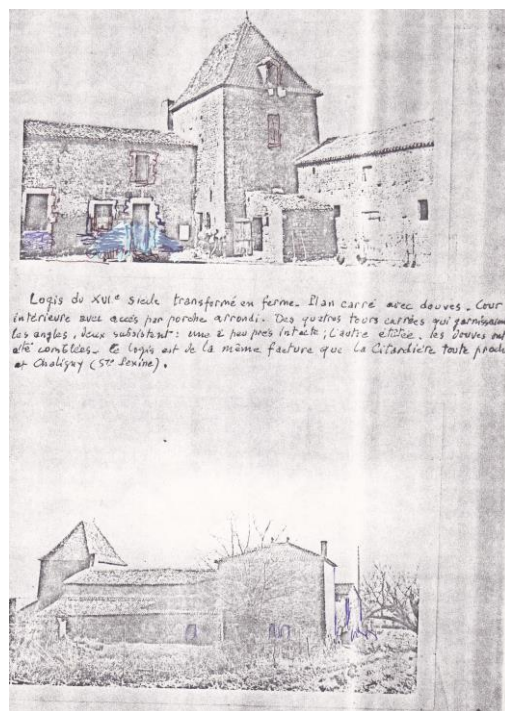 Logis du XVIe siecle transformé en ferme. Plan carré avec douves. Cour
intérieure avec accés par porche arrondi. Des quatres tours carrées qui garnissaient
les angles, deux subsistent : une à peu près intacte ; l'autre étêtée. les douves ont
été comblées. Le logis est de la même facture que la Citardière toute proche
et Chaligny (Ste Pexine).